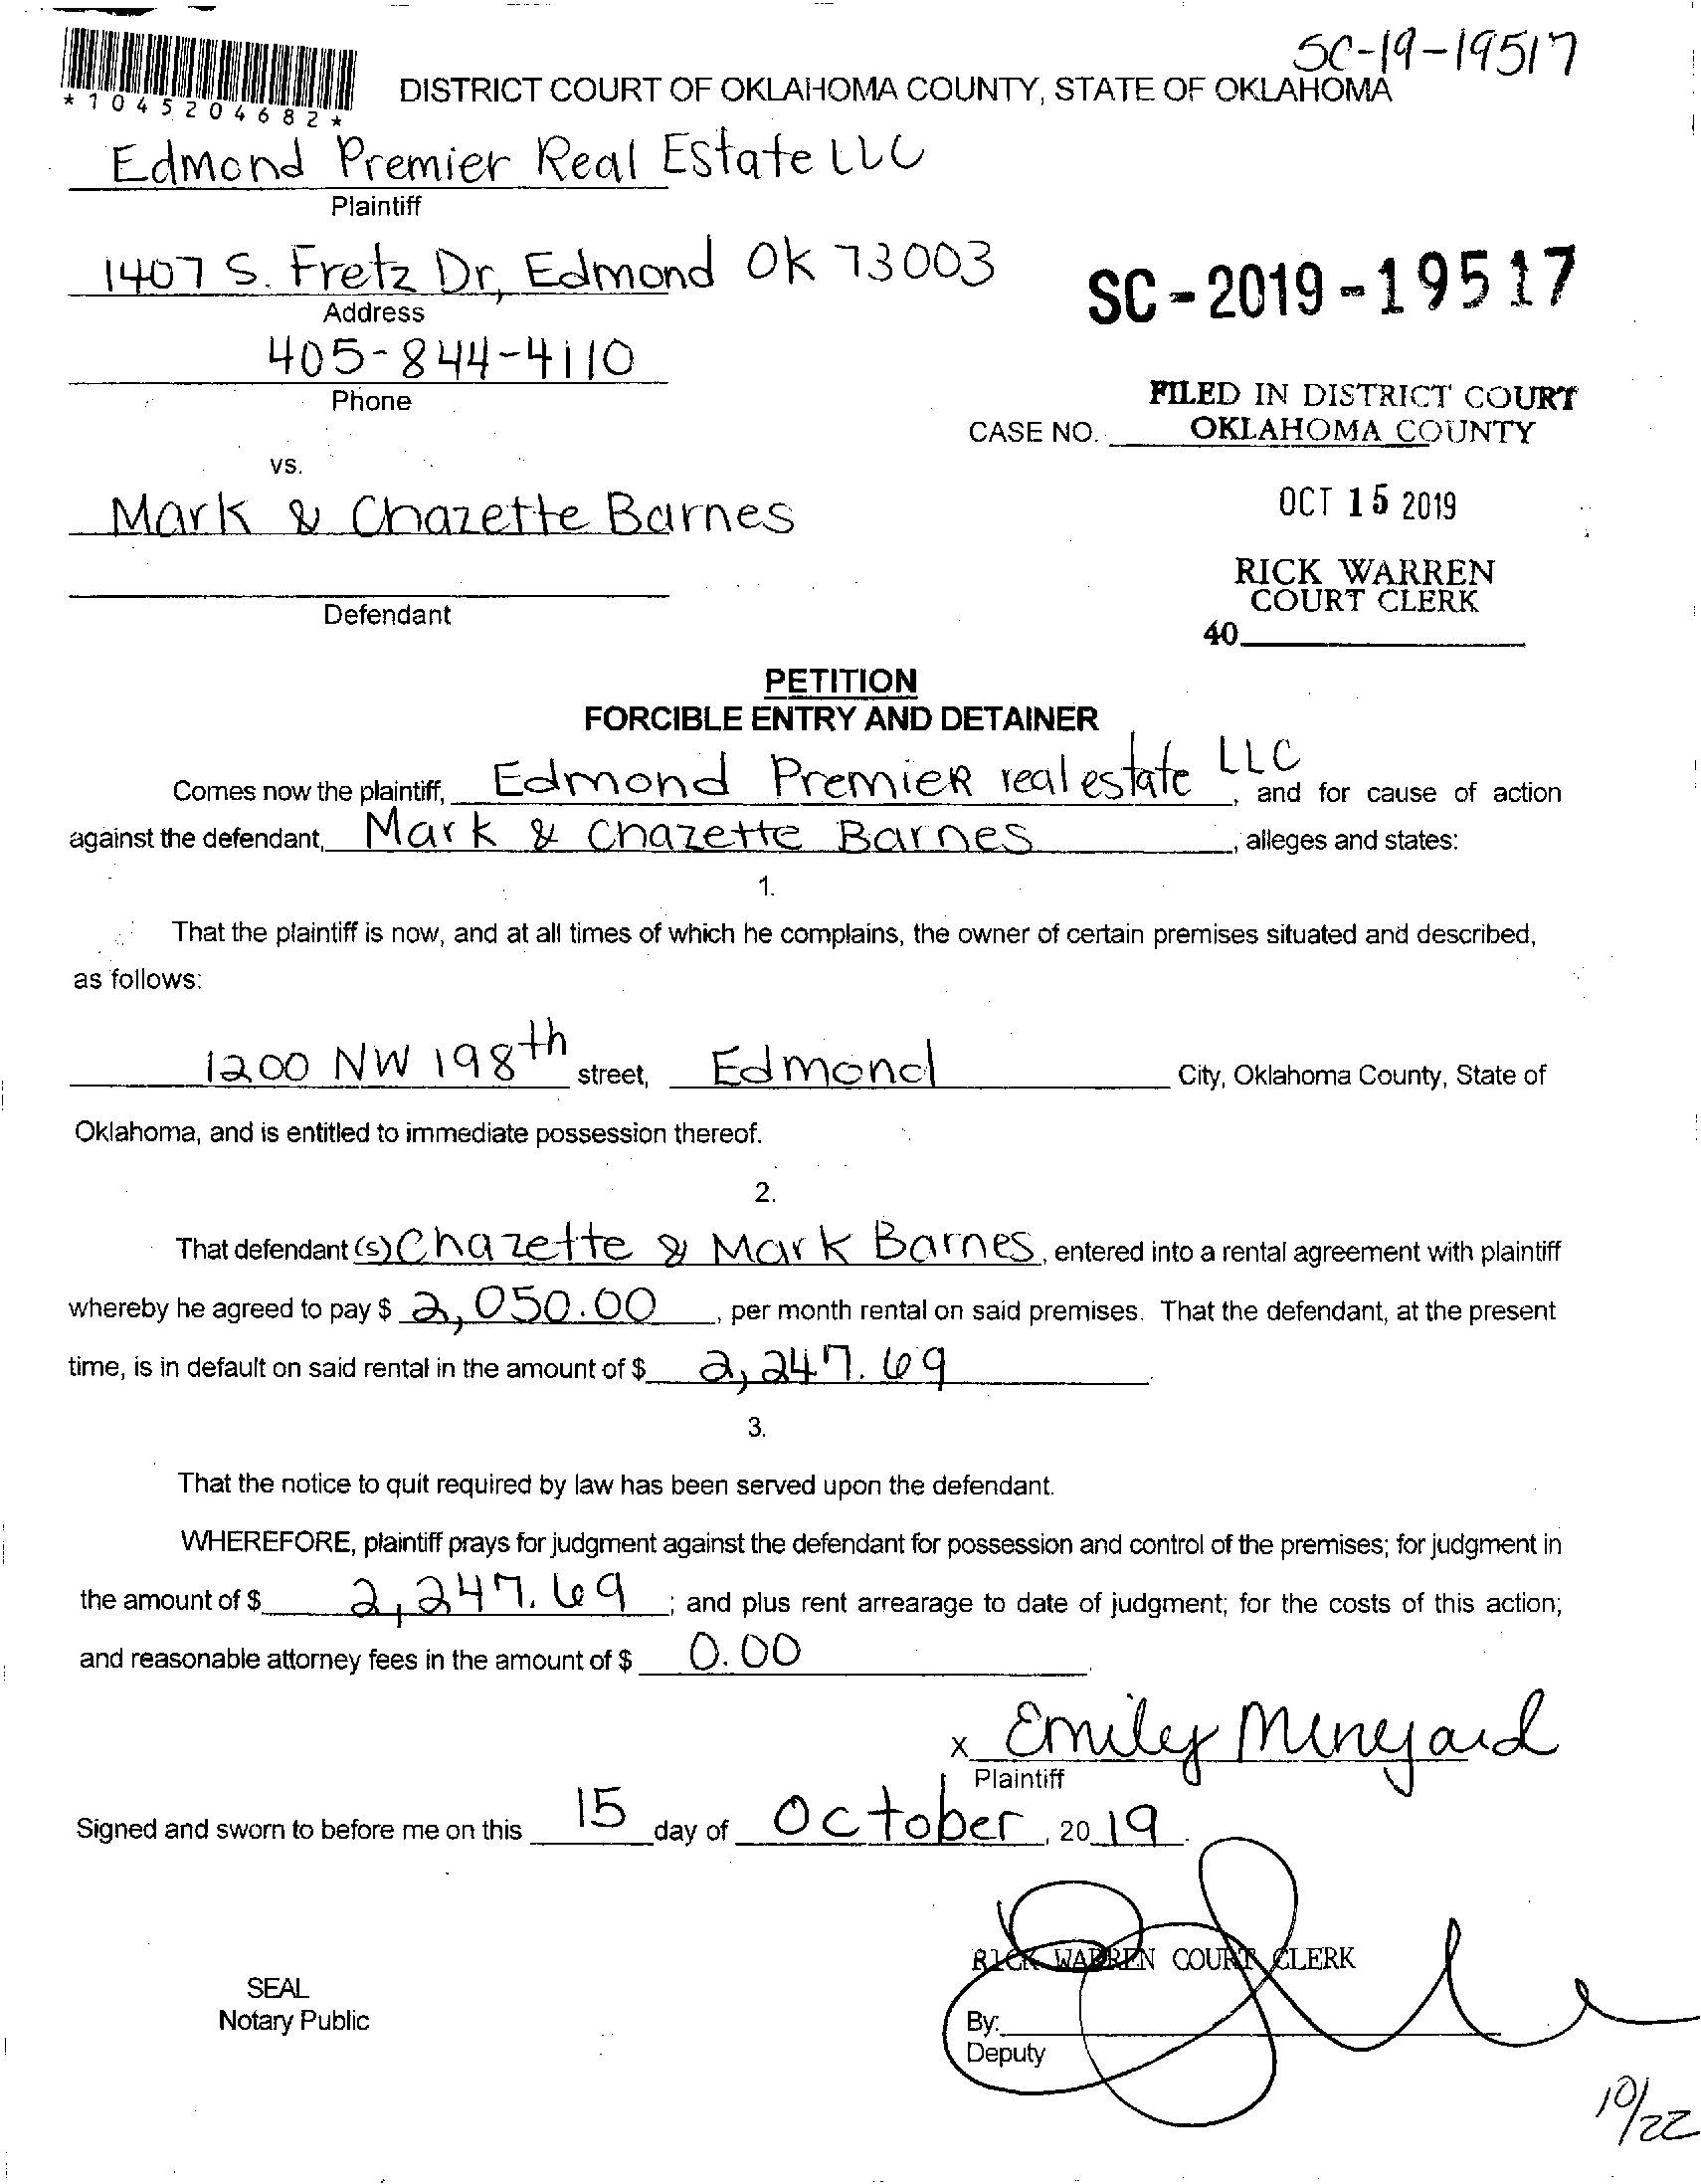 SC-19-19517
*1045204682*
DISTRICT COURT OF OKLAHOMA COUNTY, STATE OF OKLAHOMA
Edmond Premier Real Estate LLC
Plaintiff
1407 S. Fretz Dr, Edmond OK 73003
Address
SC-2019-19517
405-844-4110
Phone
FILED IN DISTRICT COURT
CASE NO. OKLAHOMA COUNTY
vs.
Mark & Chazette Barnes
OCT 15 2019
RICK WARREN
COURT CLERK
Defendant
40
PETITION
FORCIBLE ENTRY AND DETAINER
Comes now the plaintiff, Edmond Premier real estate LLC, and for cause of action
against the defendant, Mark & Chazette Barnes, alleges and states:
1.
That the plaintiff is now, and at all times of which he complains, the owner of certain premises situated and described,
as follows:
1200 NW 198th street, Edmond City, Oklahoma County, State of
Oklahoma, and is entitled to immediate possession thereof.
2.
That defendant (s) Chazette & Mark Barnes, entered into a rental agreement with plaintiff
whereby he agreed to pay $ 2,050.00, per month rental on said premises. That the defendant, at the present
time, is in default on said rental in the amount of $ 2,247.69
3.
That the notice to quit required by law has been served upon the defendant.
WHEREFORE, plaintiff prays for judgment against the defendant for possession and control of the premises; for judgment in
the amount of $ 2,247.69; and plus rent arrearage to date of judgment; for the costs of this action;
and reasonable attorney fees in the amount of $ 0.00
x Emily Minyard
Plaintiff
Signed and sworn to before me on this 15 day of October, 20 19.
RICK WARREN COURT CLERK
SEAL
Notary Public
By:
Deputy
10/22